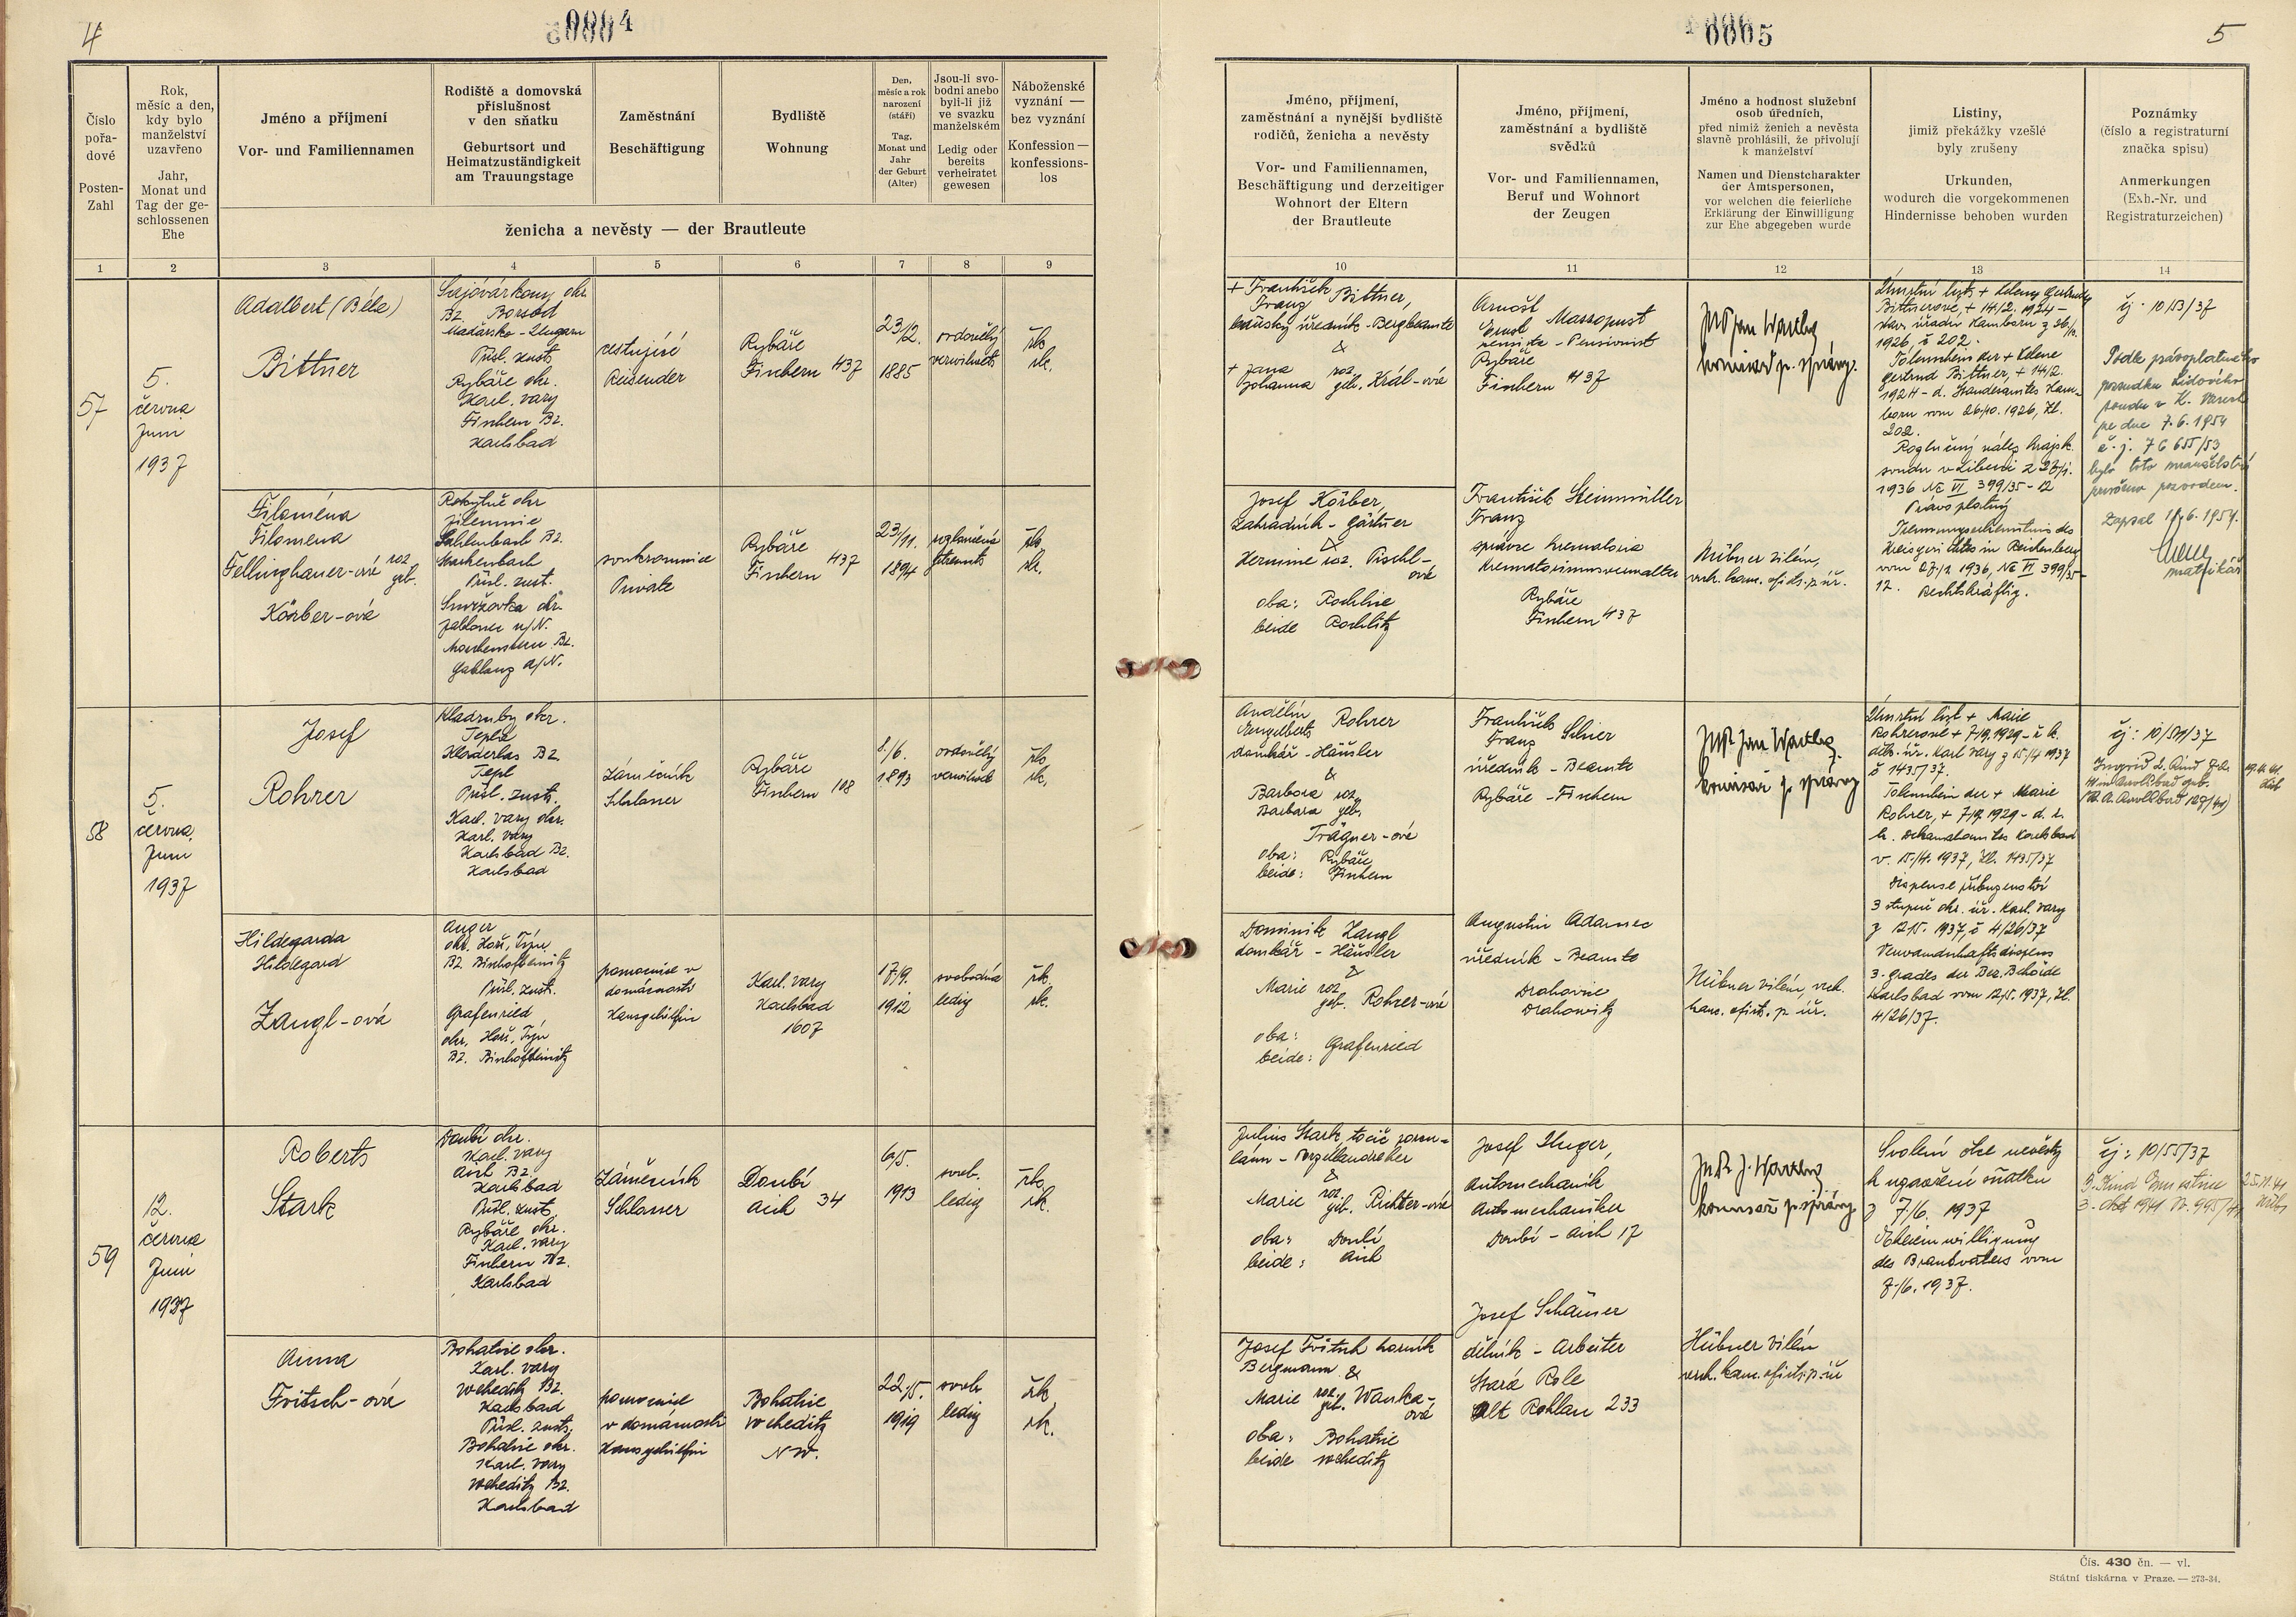 4
00004
Číslo
pořa-
dové
Posten-
Zahl
Rok,
měsíc a den,
kdy bylo
manželství
uzavřeno
Jahr,
Monat und
Tag der ge-
schlossenen
Ehe
Jméno a příjmení
Vor- und Familiennamen
Rodiště a domovská
příslušnost
v den sňatku
Geburtsort und
Heimatzuständigkeit
am Trauungstage
Zaměstnání
Beschäftigung
Bydliště
Wohnung
Den,
měsíc a rok
narození
(stáří)
Tag,
Monat und
Jahr
der Geburt
(Alter)
Jsou-li svo-
bodni anebo
byli-li již
ve svazku
manželském
Ledig oder
bereits
verheiratet
gewesen
Náboženské
vyznání —
bez vyznání
Konfession —
konfessions-
los
ženicha a nevěsty — der Brautleute
1 2 3 4 5 6 7 8 9
57
5.
června
Juni
1937
Adalbert (Béla)
Bittner
Sajóvárkony okr.
Bz. Borsod
Maďarsko - Ungarn
Přísl. zust.
Rybáře okr.
Karl. vary
Fischern Bz.
Karlsbad
cestující
Reisender
Rybáře
Fischern 437
23/2.
1885
ovdovělý
verwitwet
řk.
rk.
Filoména
Filomena
Fellinghauer-ová roz.
geb.
Körber-ová
Rokytně okr
Jilemnice
Bz.
Přísl. zust.
Smržovka okr.
Jablonec n/N.
Morchenstern Bz.
Gablonz a/N.
soukromnice
Private
Rybáře
Fischern 437
23/11.
1894
rozloučená
getrennt
řk.
rk.
58
5.
června
Juni
1937
Josef
Rohrer
Kladruby okr.
Teplá
Kladerlas Bz.
Tepl
Přísl. zust.
Karl. vary okr.
Karl. vary
Karlsbad Bz.
Karlsbad
Zámečník
Schlosser
Rybáře
Fischern 108
8./6.
1893
ovdovělý
verwitwet
řk.
rk.
Hildegarda
Hildegard
Zangl-ová
Anger
okr. Horš. Týn
Bz. Bischofteinitz
Přísl. zust.
Grafenried
okr. Horš. Týn
Bz. Bischofteinitz
pomocnice v
domácnosti
Hausgehilfin
Karl. vary
Karlsbad
1607
17/9.
1912
svobodná
ledig
řk.
rk.
59
12.
června
Juni
1937
Robert
Stark
Doubí okr.
Karl. vary
Aich Bz.
Karlsbad
Přísl. zust.
Rybáře okr.
Karl. vary
Fischern Bz.
Karlsbad
Zámečník
Schlosser
Doubí
Aich 34
6/5.
1913
svob.
ledig
řk.
rk.
Anna
Fritsch-ová
Bohatice okr.
Karl. vary
Weheditz Bz.
Karlsbad
Přísl. zust.
Bohatice okr.
Karl. vary
Weheditz Bz.
Karlsbad
pomocnice
v domácnosti
Hausgehilfin
Bohatice
Weheditz
N W.
22/5.
1919
svob
ledig
řk
rk.
00005
5
Jméno, příjmení,
zaměstnání a nynější bydliště
rodičů, ženicha a nevěsty
Vor- und Familiennamen,
Beschäftigung und derzeitiger
Wohnort der Eltern
der Brautleute
Jméno, příjmení,
zaměstnání a bydliště
svědků
Vor- und Familiennamen,
Beruf und Wohnort
der Zeugen
Jméno a hodnost služební
osob úředních,
před nimiž ženich a nevěsta
slavně prohlásili, že přivolují
k manželství
Namen und Dienstcharakter
der Amtspersonen,
vor welchen die feierliche
Erklärung der Einwilligung
zur Ehe abgegeben wurde
Listiny,
jimiž překážky vzešlé
byly zrušeny
Urkunden,
wodurch die vorgekommenen
Hindernisse behoben wurden
Poznámky
(číslo a registraturní
značka spisu)
Anmerkungen
(Exh.-Nr. und
Registraturzeichen)
10 11 12 13 14
+ František
Franz Bittner,
báňský úředník - Bergbeamte
&
+ Jana roz.
Johanna geb. Král-ová
Arnošt
Ernst Massopust
pensista - Pensionist
Rybáře
Fischern 437
komisař p. správy.
Úmrtní list + Heleny Gertrudy
Bittnerové, + 14/2. 1924 -
stav. úřadu Hamborn z 26/10.
1926, č 202.
Totenschein der + Helene
Gertrud Bittner, + 14/2.
1924 - d. Standesamtes Ham-
born vom 26/10. 1926, Zl.
202.
Rozlučný nález krajsk.
soudu v Liberci z 27/1.
1936 Nc VI 399/35-12
Právoplatný
Trennungserkenntnis des
Kreisgerichtes in Reichenberg
vom 27/1 1936, Nc VI 399/35-
12. Rechtskräftig.
čj. 10/53/37
Podle právoplatného
rozsudku Lidového
soudu v K. Varech
ze dne 7.6.1954
č.j. 7 C 655/53
bylo toto manželství
zrušeno rozvodem.
Zapsal 17/6. 1954.
matrikář
Josef Körber,
zahradník - Gärtner
&
Hermine roz. Pischl-
ová
oba: Rochlice
beide Rochlitz
František Steinmüller
Franz
správce krematoria
Krematoriumsverwalter
Rybáře
Fischern 437
Hübner Vilém,
vrch. kanc. ofic. p. úř.
Andělín
Engelbert Rohrer
domkář - Häusler
&
Barbora roz.
Barbara geb.
Trägner-ová
oba: Rybáře
beide: Fischern
František
Franz
úředník - Beamte
Rybáře - Fischern
JUDr Jan
komisař p. správy
Úmrtní list + Marie
Rohrerové + 7/9. 1929 - ř. k.
děk. úř. Karl. vary z 15/4 1937
č 1435/37.
Totenschein der + Marie
Rohrer, + 7/9. 1929 - d. r.
k. Dekanalamtes Karlsbad
v. 15/4. 1937, Zl. 1435/37
Dispense příbuzenství
3 stupně okr. úř. Karl. vary
z 12/5. 1937, č 4/26/37
Verwandschaftsdispens
3. grades der Bez. Behörde
Karlsbad vom 12/5. 1937, Zl.
4/26/37.
Dominik Zangl
domkář - Häusler
&
Marie roz.
geb. Rohrer-ová
oba:
beide: Grafenried
Augustin Adamec
úředník - Beamte
Drahovice
Drahowitz
Hübner Vilém, vrch.
kanc. ofic. p. úř.
Julius Stark, točič porcu-
lánu - Porzellandreher
&
Marie roz.
geb. Richter-ová
oba: Doubí
beide: Aich
Josef Unger,
Automechanik
Automechaniker
Doubí - Aich 17
komisař p. správy
Svolení otce nevěsty
k uzavření sňatku
z 7/6. 1937
Eheeinwilligung
des Brautvaters vom
7/6. 1937.
čj: 10/55/37
Josef Fritsch horník
Bergmann &
Marie roz.
geb. Wanka-
ová
oba: Bohatice
beide Weheditz
Josef
dělník - Arbeiter
Stará Role
Alt Rohlau 233
Hübner Vilém
vrch. kanc. ofic. p. úř
Čís. 430 čn. — vl.
Státní tiskárna v Praze. — 273-34.